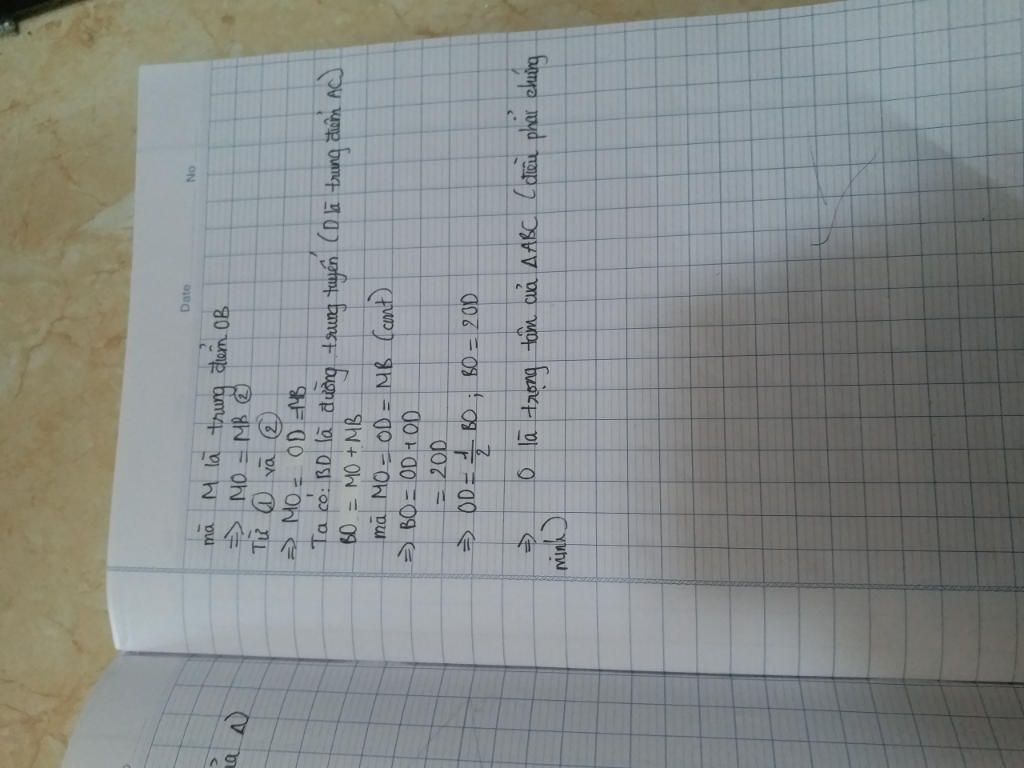 Date No
mà M là trung điểm OB
=> MO = MB ②
Từ ① và ②
=> MO = OD = MB
Ta có: BD là đường trung tuyến (D là trung điểm AC)
BO = MO + MB
mà MO = OD = MB (cmt)
=> BO = OD + OD
= 2OD
=> OD = 1/2 BO ; BO = 2OD
=> O là trọng tâm của ΔABC (điều phải chứng
minh)
Δ)